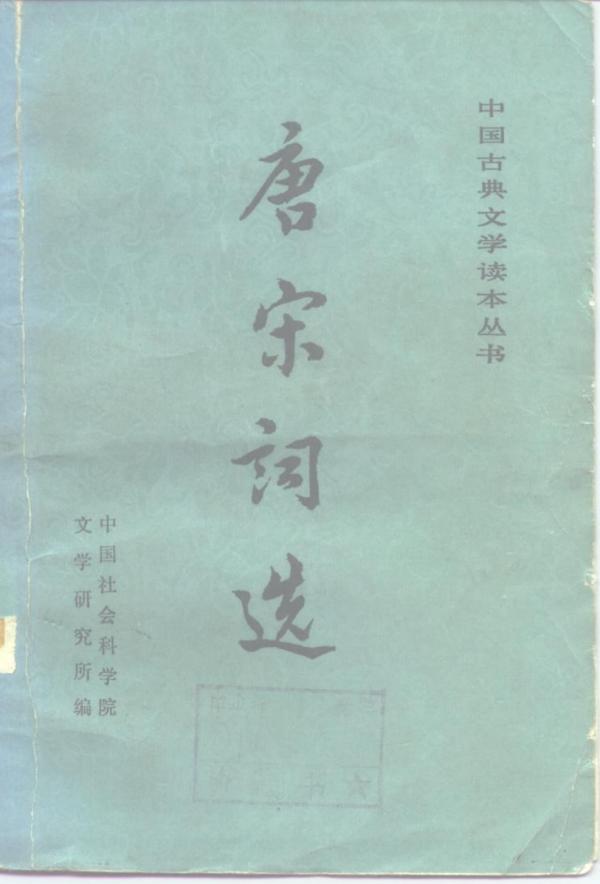 中国古典文学读本丛书
唐宋词选
中国社会科学院
文学研究所编